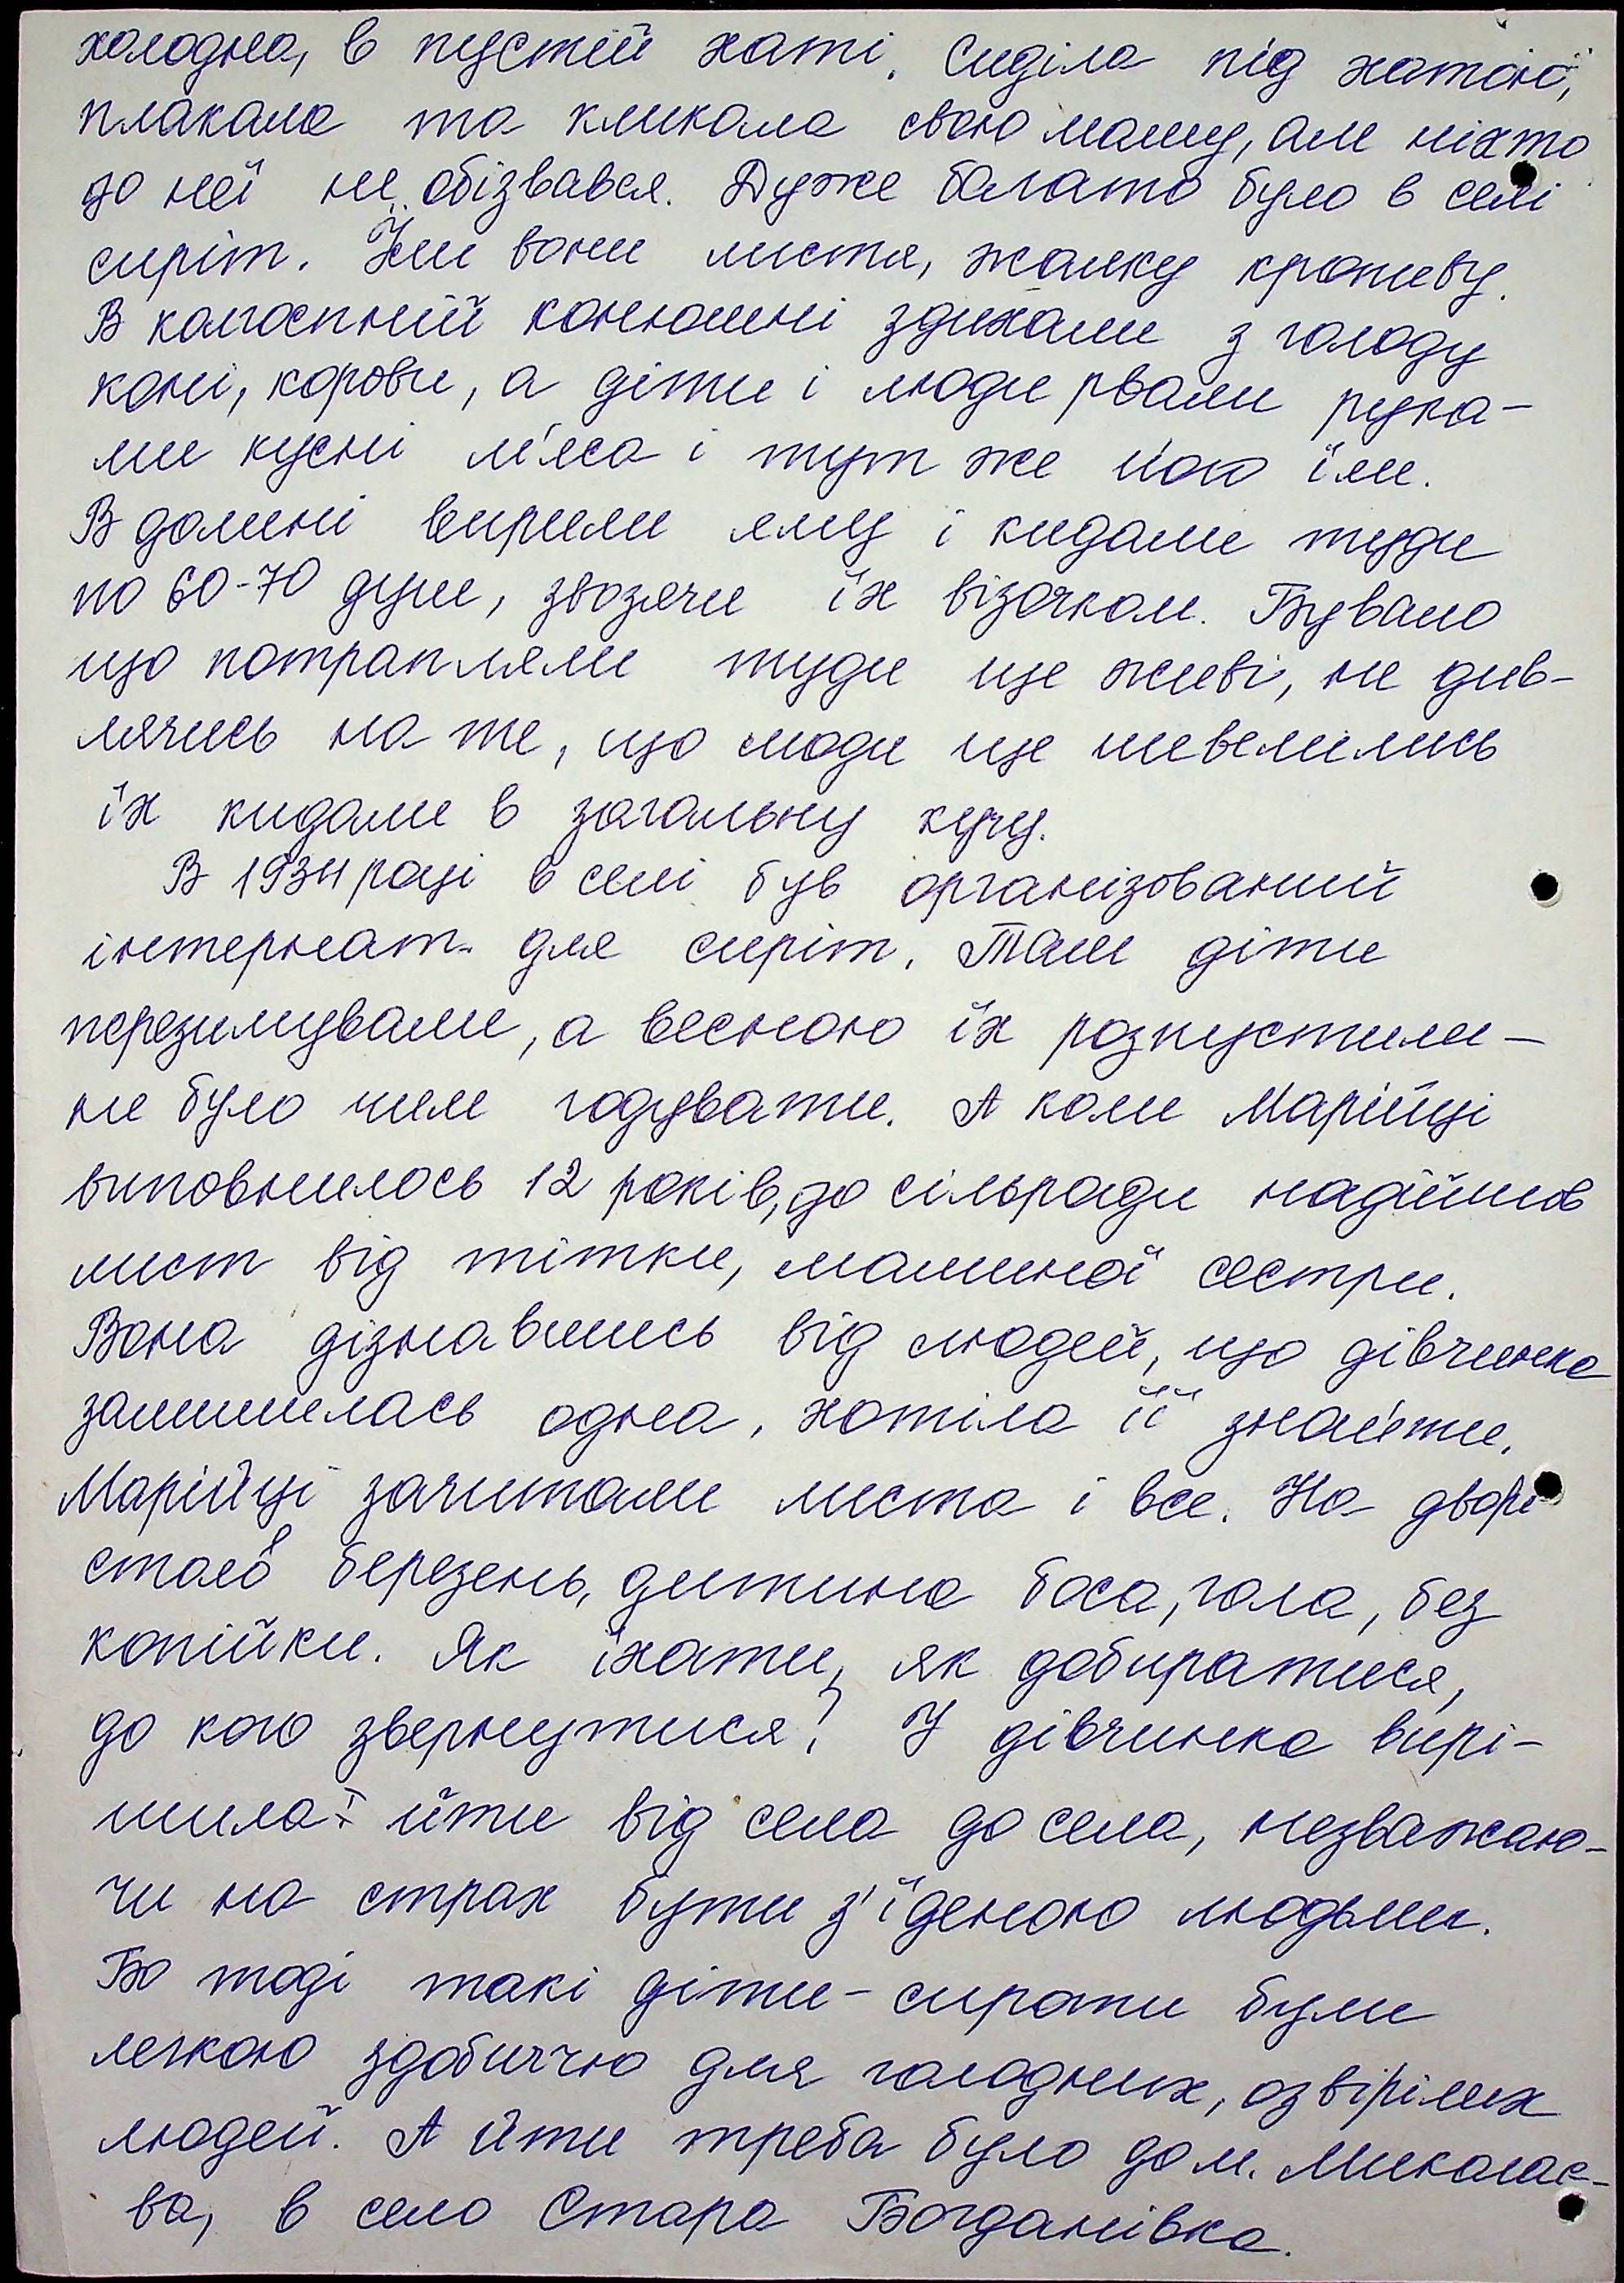 холодна, в пустій хаті. Сиділа під хатою,
плакала та кликала свою маму, але ніхто
до неї не обізвався. Дуже багато було в селі
сиріт. Їли вони листя, жалку кропиву.
В колгоспній конюшні здихали з голоду
коні, корови, а діти і люди рвали рука-
ми кусні м'яса і тут же його їли.
В долині вирили яму і кидали туди
по 60-70 душ, звозячи їх візочком. Бувало
що потрапляли туди ще живі, не див-
лячись на те, що люди ще шевелились
їх кидали в загальну кучу.
В 1934 році в селі був організований
інтернат для сиріт. Там діти
перезимували, а весною їх розпустили -
не було чим годувати. А коли Марійці
виповнилось 12 років, до сільради надійшов
лист від тітки, маминої сестри.
Вона дізнавшись від людей, що дівчинка
залишилась одна, хотіла її знайти.
Марійці зачитали листа і все. На дворі
стояв березень, дитина боса, гола, без
копійки. Як їхати, як добиратися,
до кого звернутися? І дівчинка вирі-
шила: йти від села до села, незважаю-
чи на страх бути з'їденою людьми.
Бо тоді такі діти - сироти були
легкою здобиччю для голодних, озвірілих
людей. А йти треба було до м. Миколає-
ва, в село Стара Богданівка.